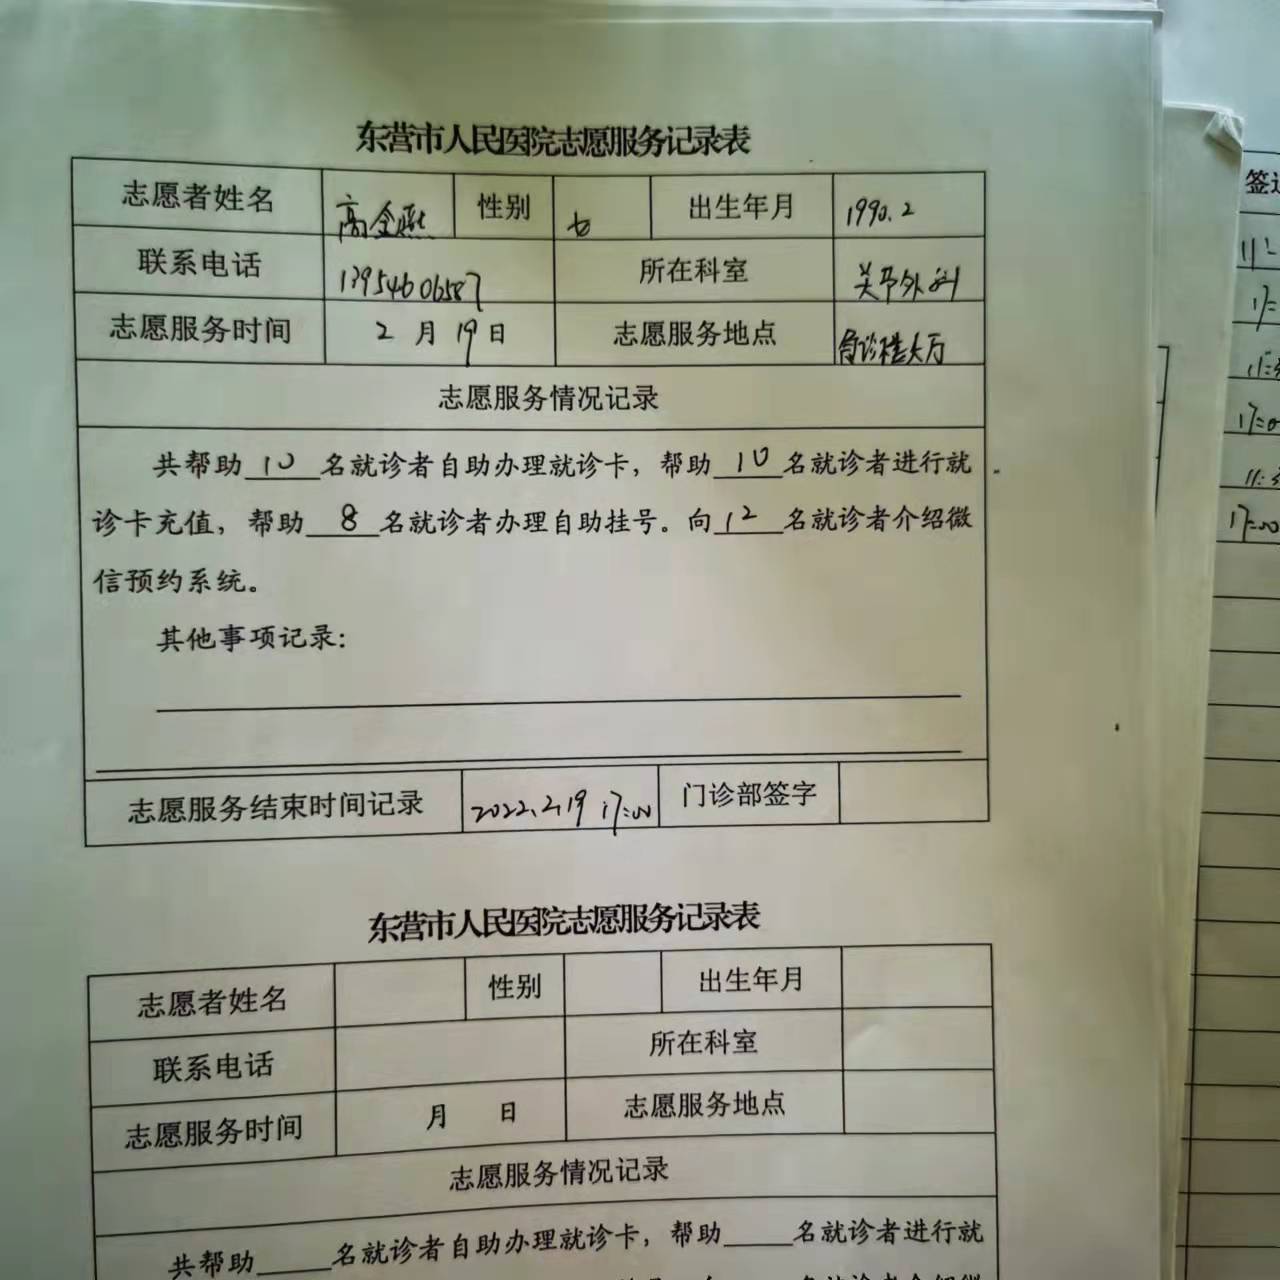 东营市人民医院志愿服务记录表
志愿者姓名 高金燕 性别 女 出生年月 1990.2
联系电话 13954606587 所在科室 关节外科
志愿服务时间 2 月 19 日 志愿服务地点 门诊楼大厅
志愿服务情况记录
共帮助 10 名就诊者自助办理就诊卡，帮助 10 名就诊者进行就
诊卡充值，帮助 8 名就诊者办理自助挂号。向 12 名就诊者介绍微
信预约系统。
其他事项记录:
志愿服务结束时间记录 2022.2.19 17:00 门诊部签字
东营市人民医院志愿服务记录表
志愿者姓名 性别 出生年月
联系电话 所在科室
志愿服务时间 月 日 志愿服务地点
志愿服务情况记录
共帮助 名就诊者自助办理就诊卡，帮助 名就诊者进行就
签
17:00